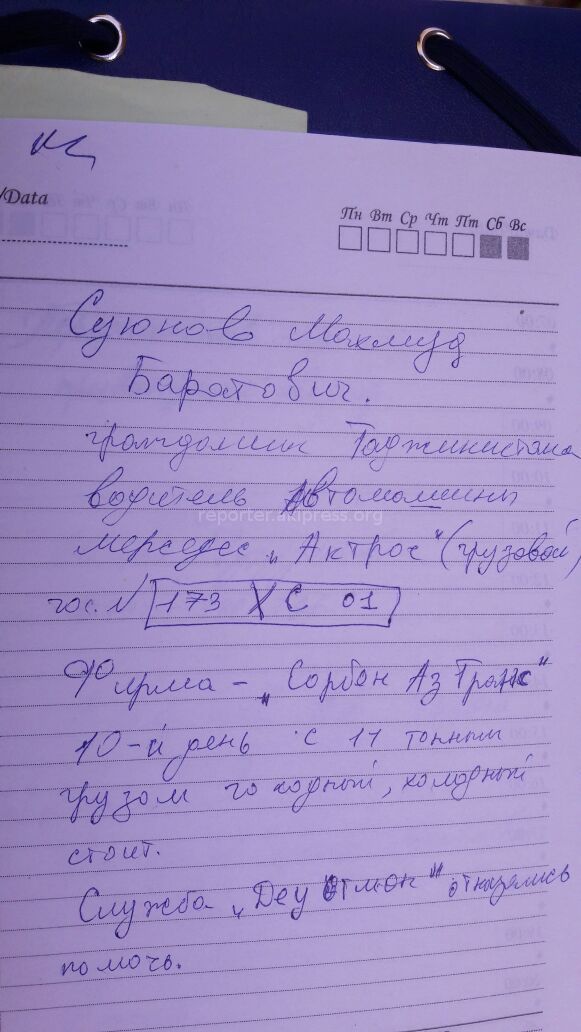 /Data
Пн Вт Ср Чт Пт Сб Вс
Суюнов Махмуд
Баротович.
гражданин Таджикистана
водитель автомашины
reporter.akipress.org
мерседес „Актрос" (грузовой)
гос. N 173 ХС 01
Фирма - „Сорбон Аз Транс"
10-й день с 11 тонным
грузом голодный, холодный
стоит.
Служба „Деу Отмок" отказались
помочь.